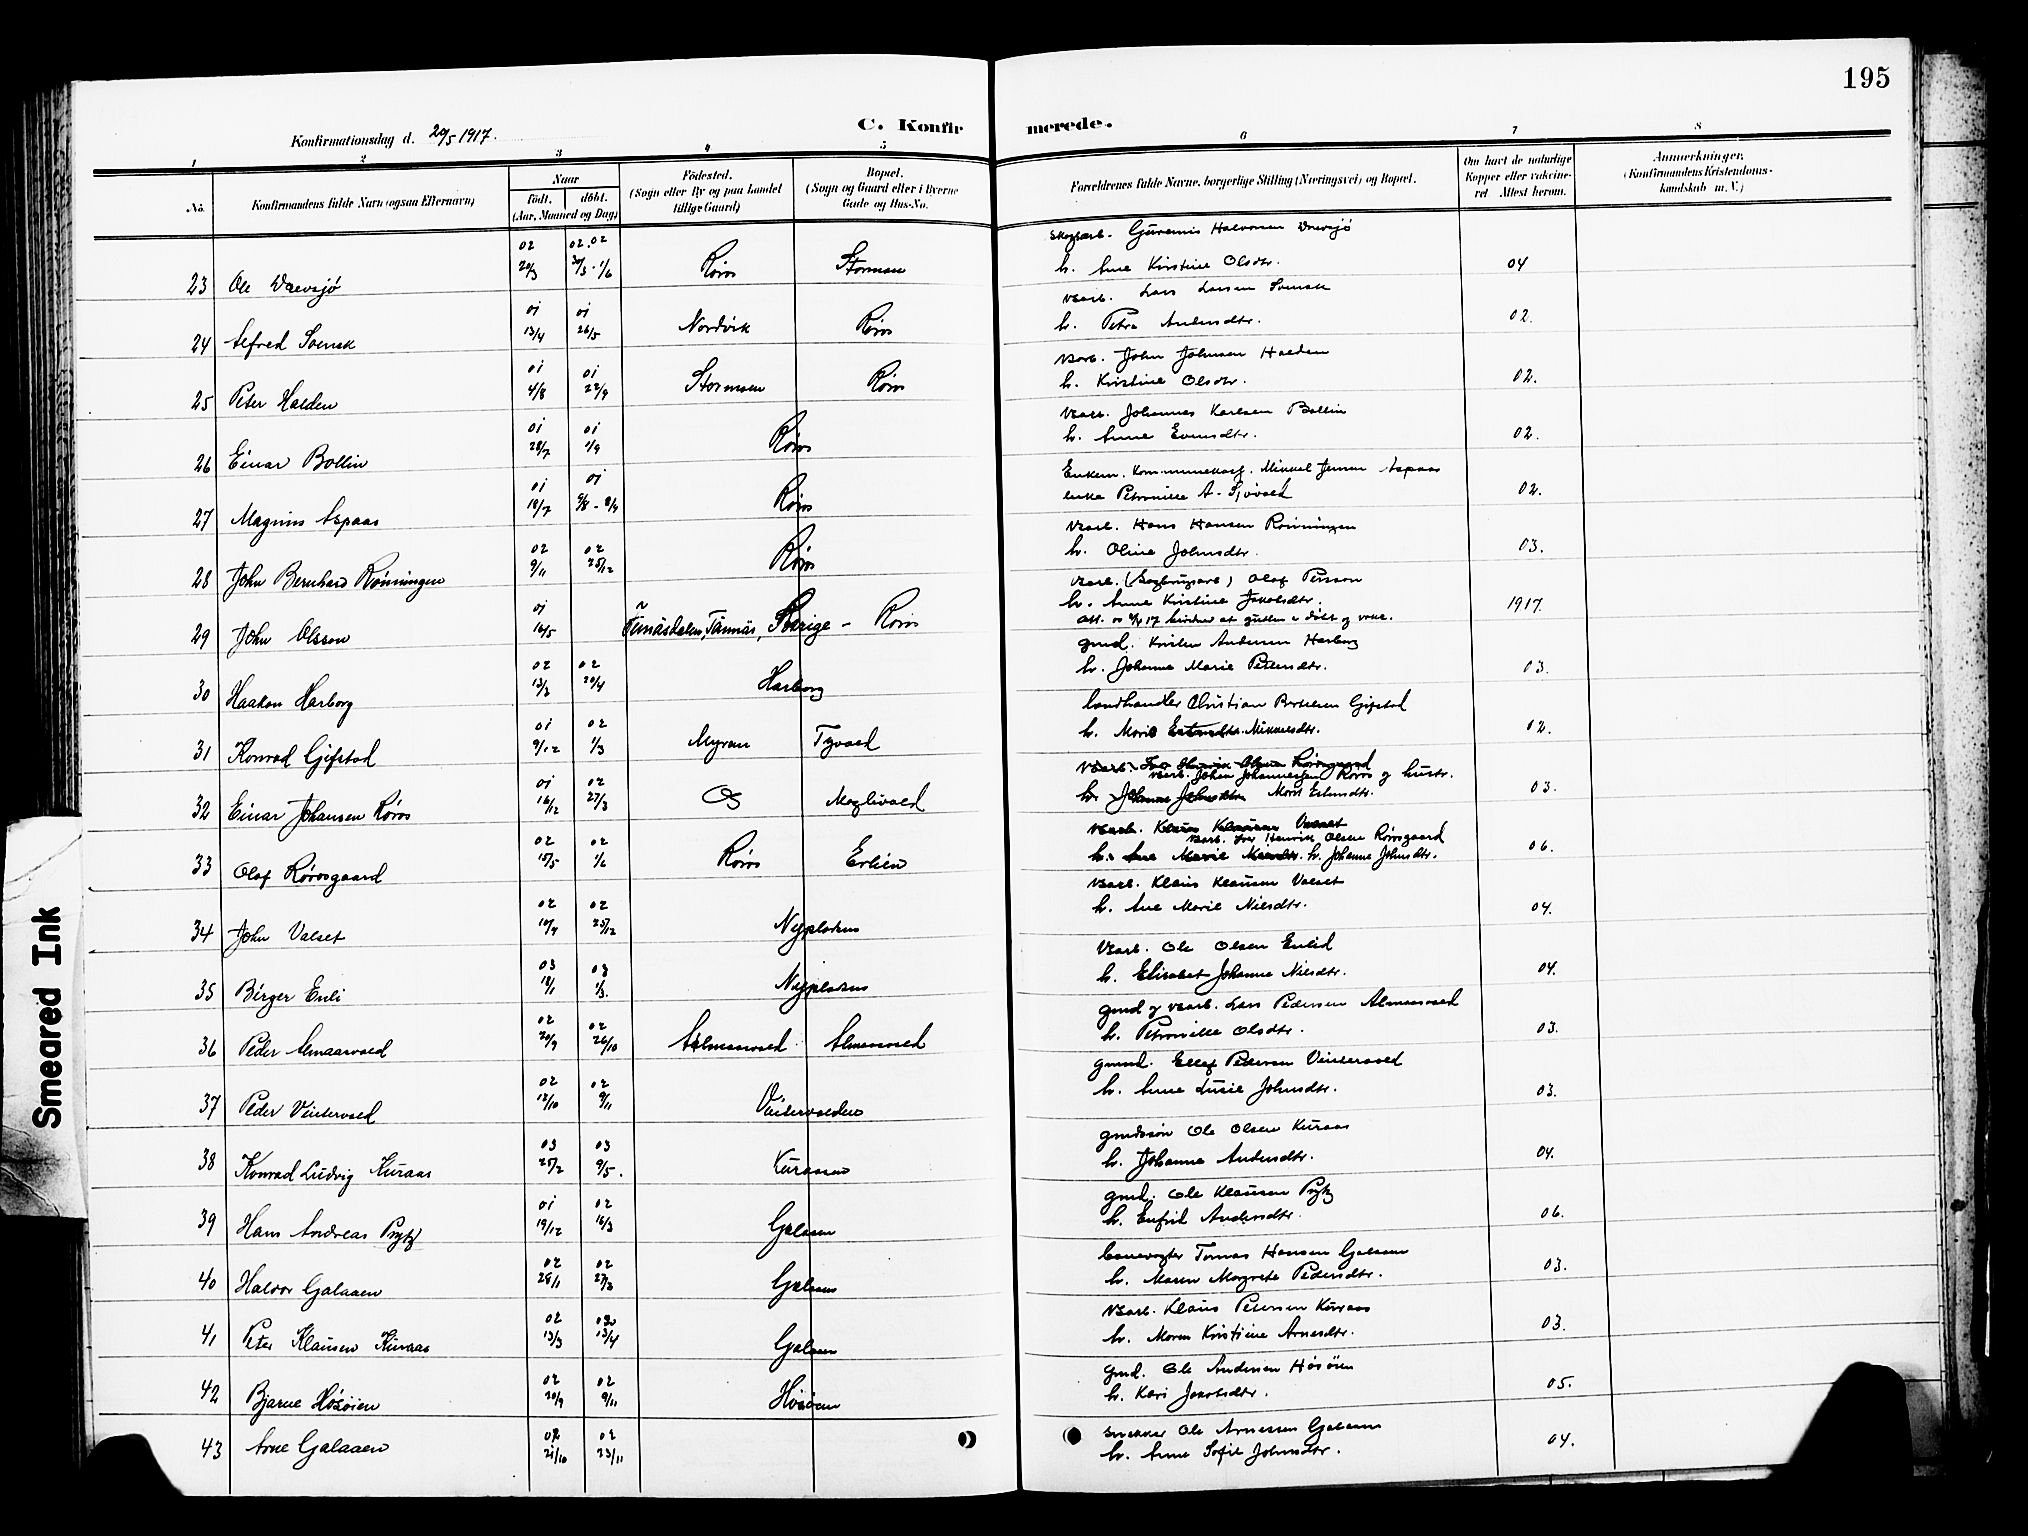 195
C. Konfirmerede.
Konfirmationsdag d. 29/5 1917.
1 2 3 4 5 6 7 8
No.
Konfirmandens fulde Navn (ogsaa Efternavn)
Naar
født. døbt.
(Aar, Maaned og Dag)
Fødested.
(Sogn eller By og paa Landet
tillige Gaard)
Bopæl.
(Sogn og Gaard eller i Byerne
Gade og Hus-No.
Forældrenes fulde Navne, borgerlige Stilling (Næringsvei) og Bopæl.
Om havt de naturlige
Kopper eller vakcine-
ret Attest herom.
Anmerkninger.
(Konfirmandens Kristendoms-
kundskab m. V.)
23 Ole Drevsjø 02 20/3 02. 02 30/3 - 1/6 Røros Stormoen
Halvorsen Drevsjø
h. Ane Kirstine Olsdtr. 04
24 Alfred Svensk 01 13/4 01 26/5 Nordvik Røros
Varb. Lars Larsen Svensk
h. Petra Andersdtr. 02.
25 Peter Halden 01 4/8 01 22/9 Stormoen Røros
Varb. John Johnsen Halden
h. Kristine Olsdtr. 02.
26 Einar Bollin 01 28/7 01 1/9 Røros
Varb. Johannes Karlsen Bollin
h. Anne Evensdtr. 02.
27 Magnus Aspaas 01 18/7 01 Røros
Enkem. Kommunekas. Mikkel Jensen Aspaas
enke Petronille A. Sjøvold 02.
28 John Bernhard Rønningen 02 9/11 02 25/12 Røros
Varb. Hans Hansen Rønningen
h. Oline Johnsdtr. 03.
29 John Olsson 01 16/5 Funäsdalen, Tännäs, Sverige - Røros
Varb. (Sagbrugsarb) Olof Persson
h. Anne Kristine Jakobsdtr. 1917.
30 Haakon Harborg 02 13/3 02 20/4 Harborg
gmd. Kristen Andersen Harborg
h. Johanne Marie Petersdtr. 03.
31 Konrad Gjifstad 01 9/12 02 1/3 Myran Tyvold
landhandler Christian Bertelsen Gjifstad
h. Marie Estensdtr. Mikkelsdtr. 02.
32 Einar Johansen Røros 01 16/12 02 27/3 Os
Varb. Iver Henrik Olsen Rørosgaard
Varb. Johan Johannessen Røros og hustr.
h. Johanne Johnsdtr. Marit Estensdtr. 03.
33 Olaf Rørosgaard 02 15/5 02 1/6 Røros Erlien
Varb. Klaus Klausen Valset
Varb. Iver Henrik Olsen Rørosgaard
h. Ane Marie Nilsdtr. h. Johanne Johnsdtr. 06.
34 John Valset 02 10/9 02 25/12 Nyplassen
Varb. Klaus Klausen Valset
h. Ane Marie Nilsdtr. 04.
35 Birger Enli 03 18/1 03 1/3. Nyplassen
Varb. Ole Olsen Enlid
h. Elisabet Johanne Nilsdtr. 04.
36 Peder Almaasvold 02 20/9 02 26/10 Almaasvold Almaasvold
gmd og varb. Lars Pedersen Almaasvold
h. Petronille Olsdtr. 03.
37 Peder Vintervold 02 12/10 02 9/11 Vintervolden
gmd. Ellef Pedersen Vintervold
h. Anne Lusie Johnsdtr. 03.
38 Konrad Ludvig Kuraas 03 25/2 03 9/5. Kuraasen
gmdssøn Ole Olsen Kuraas
h. Johanne Andersdtr. 04.
39 Hans Andreas Prytz 01 19/12 02 16/3 Galaaen
gmd. Ole Klausen Prytz
h. Enfrid Andersdtr. 06.
40 Halvor Galaaen 02 28/1 02 27/3 Galaaen
banevogter Tomas Hansen Galaaen
h. Maren Magrete Pedersdtr. 03.
41 Peter Klausen Kuraas 02 13/3 02 13/4 Galaaen
Varb. Klaus Petersen Kuraas
h. Maren Kristine Arnesdtr. 03.
42 Bjarne Høsøien 02 20/9 02 9/11 Høsøien
gmd. Ole Andersen Høsøien
h. Kari Jakobsdtr. 05.
43 Arne Galaaen 02 21/10 02 23/11
snekker Ole Arnessen Galaaen
h. Anne Sofie Johnsdtr. 04.
Smeared Ink